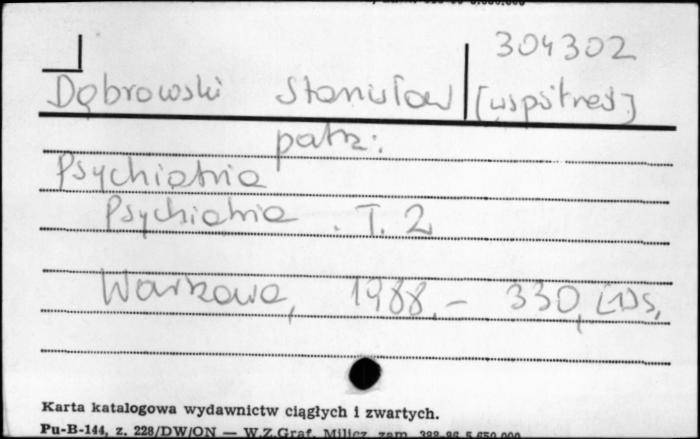 304302
Dąbrowski Stanisław [współred.]
patrz:
Psychiatria
Psychiatria. T. 2
Warszawa, 1988. - 330, [1] s.
Karta katalogowa wydawnictw ciągłych i zwartych.
Pu-B-144, z. 228/DW/ON — W.Z.Graf. Milicz zam. 388-86 5.650.000